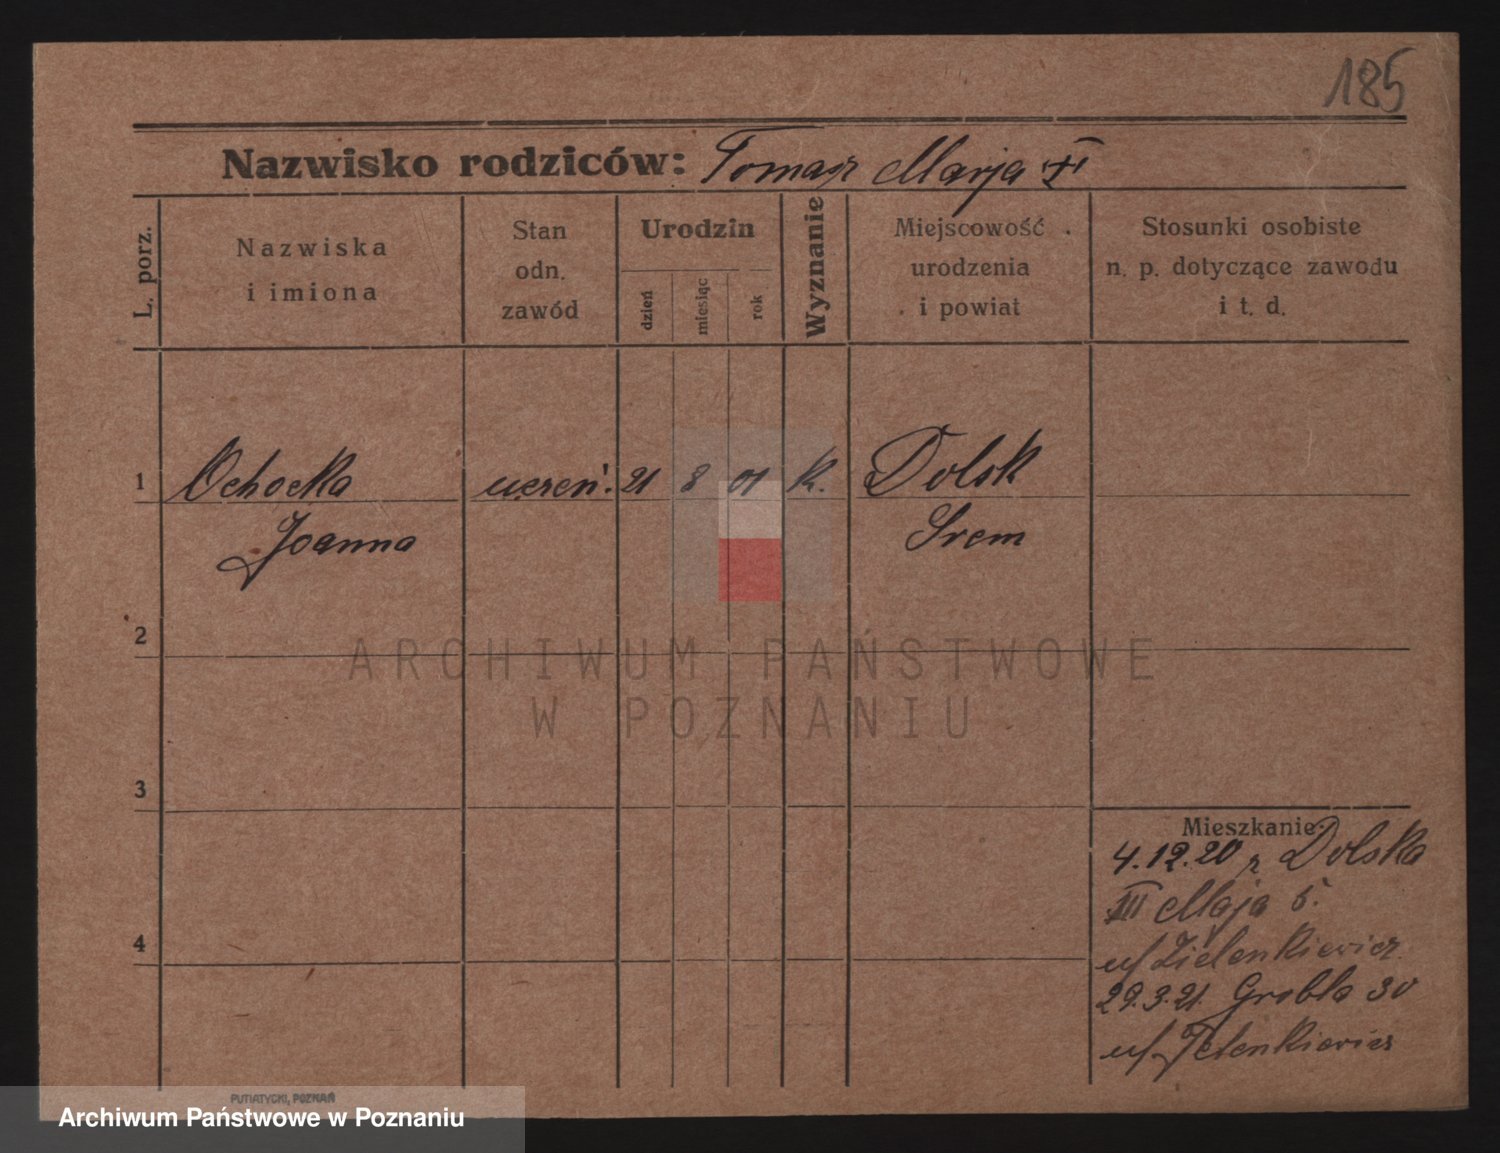 185
Nazwisko rodziców: Tomasz Marja
L. porz.
Nazwiska
i imiona
Stan
odn.
zawód
Urodzin
dzień
miesiąc
rok
Wyznanie
Miejscowość
urodzenia
i powiat
Stosunki osobiste
n. p. dotyczące zawodu
i t. d.
1 Ochocka uczeń. 21 8 01 K. Dolsk
Joanna Srem
2
3
4
Mieszkanie:
4.12.20 z Dolska
III Maja 5.
u/ Zielenkiewicz
29.3.21. Grobla 30
u/
PUTIATYCKI, POZNAŃ
ARCHIWUM PAŃSTWOWE
W POZNANIU
Archiwum Państwowe w Poznaniu